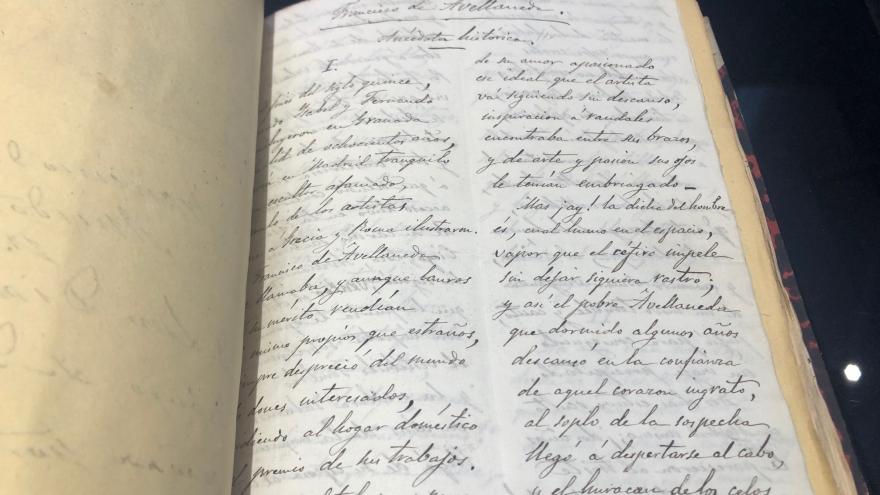 Francisco de Avellaneda.
Anécdota histórica.
I.
del siglo quince,
Isabel y Fernando
en Granada
de ochocientos años,
en Madrid tranquilo
escultor afamado,
de los artistas
Grecia y Roma ilustraron.
Francisco de Avellaneda
llamaba, y aunque lauros
mérito, rendían
mismo propios que estraños,
despreció del mundo
dones interesados,
al hogar doméstico
premio de sus trabajos.
de su amor apasionado
ese ideal que el artista
vá siguiendo sin descanso,
inspiracion á raudales
encontraba entre sus brazos,
y de arte y pasion sus ojos
le tenían embriagado —
Mas ¡ay! la dicha del hombre
és, cual humo en el espacio,
vapor que el céfiro impele
sin dejar siquiera rastro;
y así el pobre Avellaneda
que dormido algunos años
descansó en la confianza
de aquel corazon ingrato,
al soplo de la sospecha
llegó á despertarse al cabo,
y el huracan de los celos